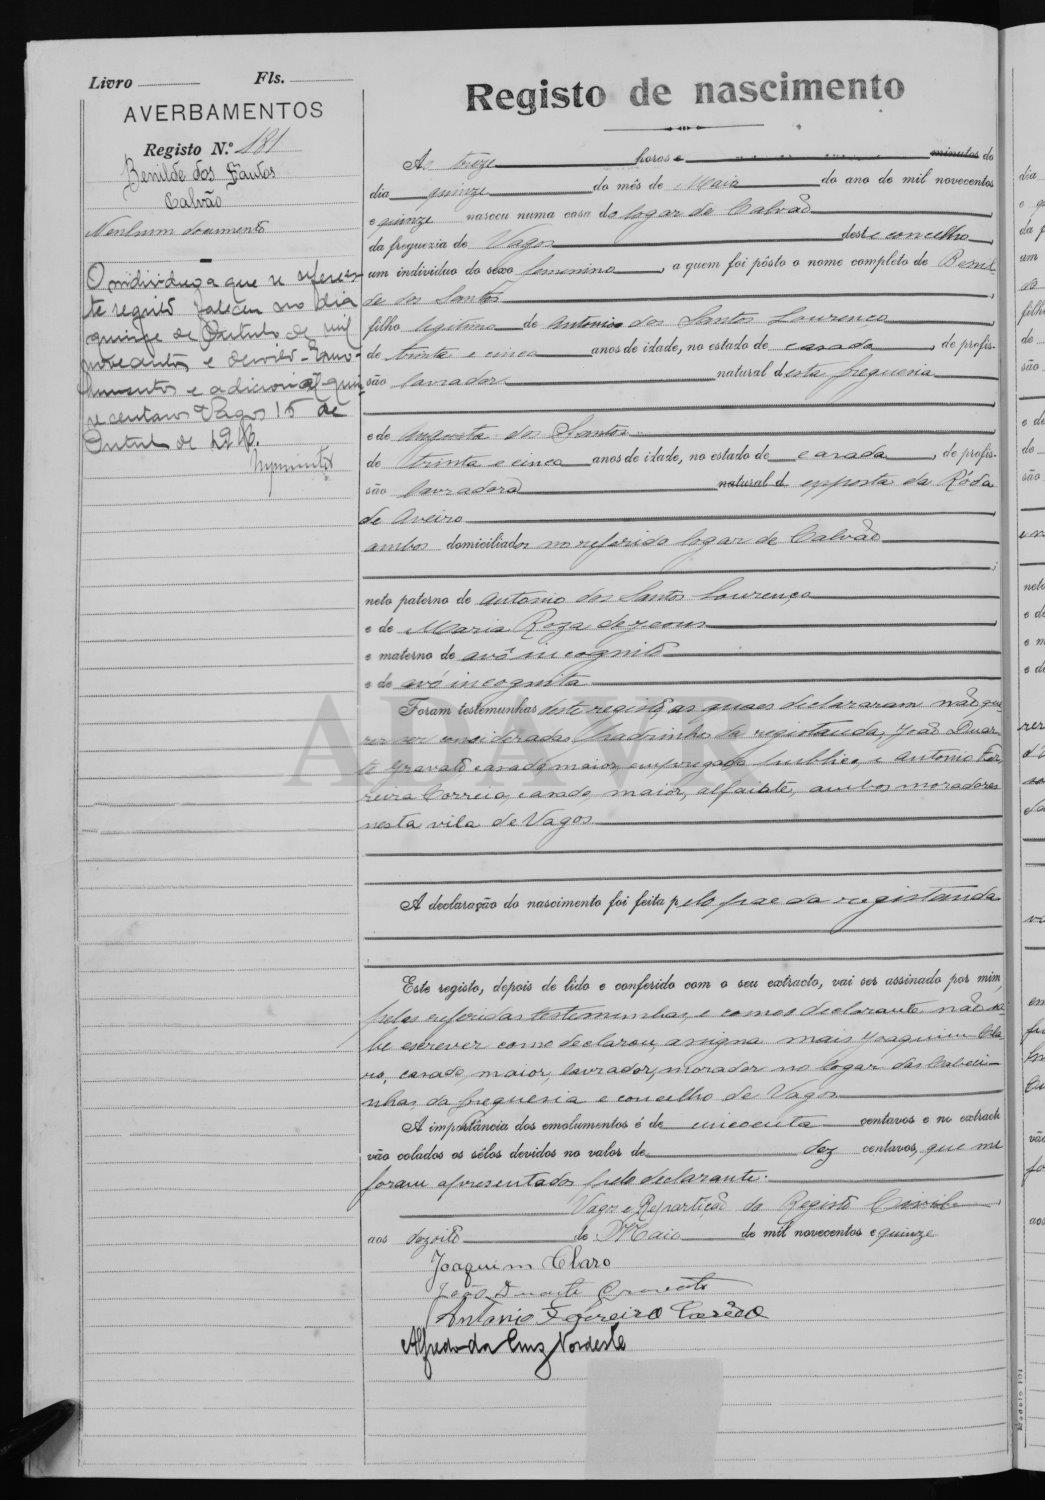 Livro Fls.
AVERBAMENTOS
Registo N.º 181
Benilde dos Santos
Calvão
Nenhum documento
O individuo a que se referes-
te registo faleceu no dia
quinze de Outubro de mil
novecentos e dezoito - Emo-
lumentos e adicional quin-
ze centavos Vagos 15 de
Outubro de 1918.
Registo de nascimento
Ás treze horas e minutos do
dia quinze do mês de Maio do ano de mil novecentos
e quinze nasceu numa casa do logar de Calvão
da freguezia de Vagos deste concelho
um individuo do sexo femenino, a quem foi pôsto o nome completo de Benil-
de dos Santos
filho legitimo de Antonio dos Santos Lourenco
de trinta e cinco anos de idade, no estado de casado, de profis-
são lavrador natural desta freguesia
e de Augusta dos Santos
de trinta e cinco anos de idade, no estado de casada, de profis-
são lavradora natural d exposta da Róda
de Aveiro
ambos domiciliados no referido logar de Calvão
neto paterno de Antonio dos Santos Lourenço
e de Maria Roza de Jesus
e materno de avô incognito
e de avó incognita
Foram testemunhas deste registo, as quaes declararam não que-
rer ser consideradas Padrinhos da registanda, João Duar-
te Gravato casado, maior, empregado publico, e Antonio Fer-
reira Correia, casado maior, alfaiate, ambos moradores
nesta vila de Vagos
A declaração do nascimento foi feita pelo pae da registanda
Este registo, depois de lido e conferido com o seu extracto, vai ser assinado por mim,
pelas referidas testemunhas, e como o declarante não sa-
be escrever como declarou, assigna mais Joaquim Cla-
ro, casado, maior, lavrador, morador no logar das Cabeci-
nhas, da freguesia e concelho de Vagos
A importância dos emolumentos é de cincoenta centavos e no extracto
vão colados os sêlos devidos no valor de dez centavos, que me
foram apresentados pelo declarante.
Vagos e Repartição do Registo Civil
aos dezoito de Maio de mil novecentos e quinze
Joaquim Claro
João Duarte Gravato
Antonio Ferreira Corrêa
Alfredo da Cruz Nordeste
ADAVR
Modelo 191